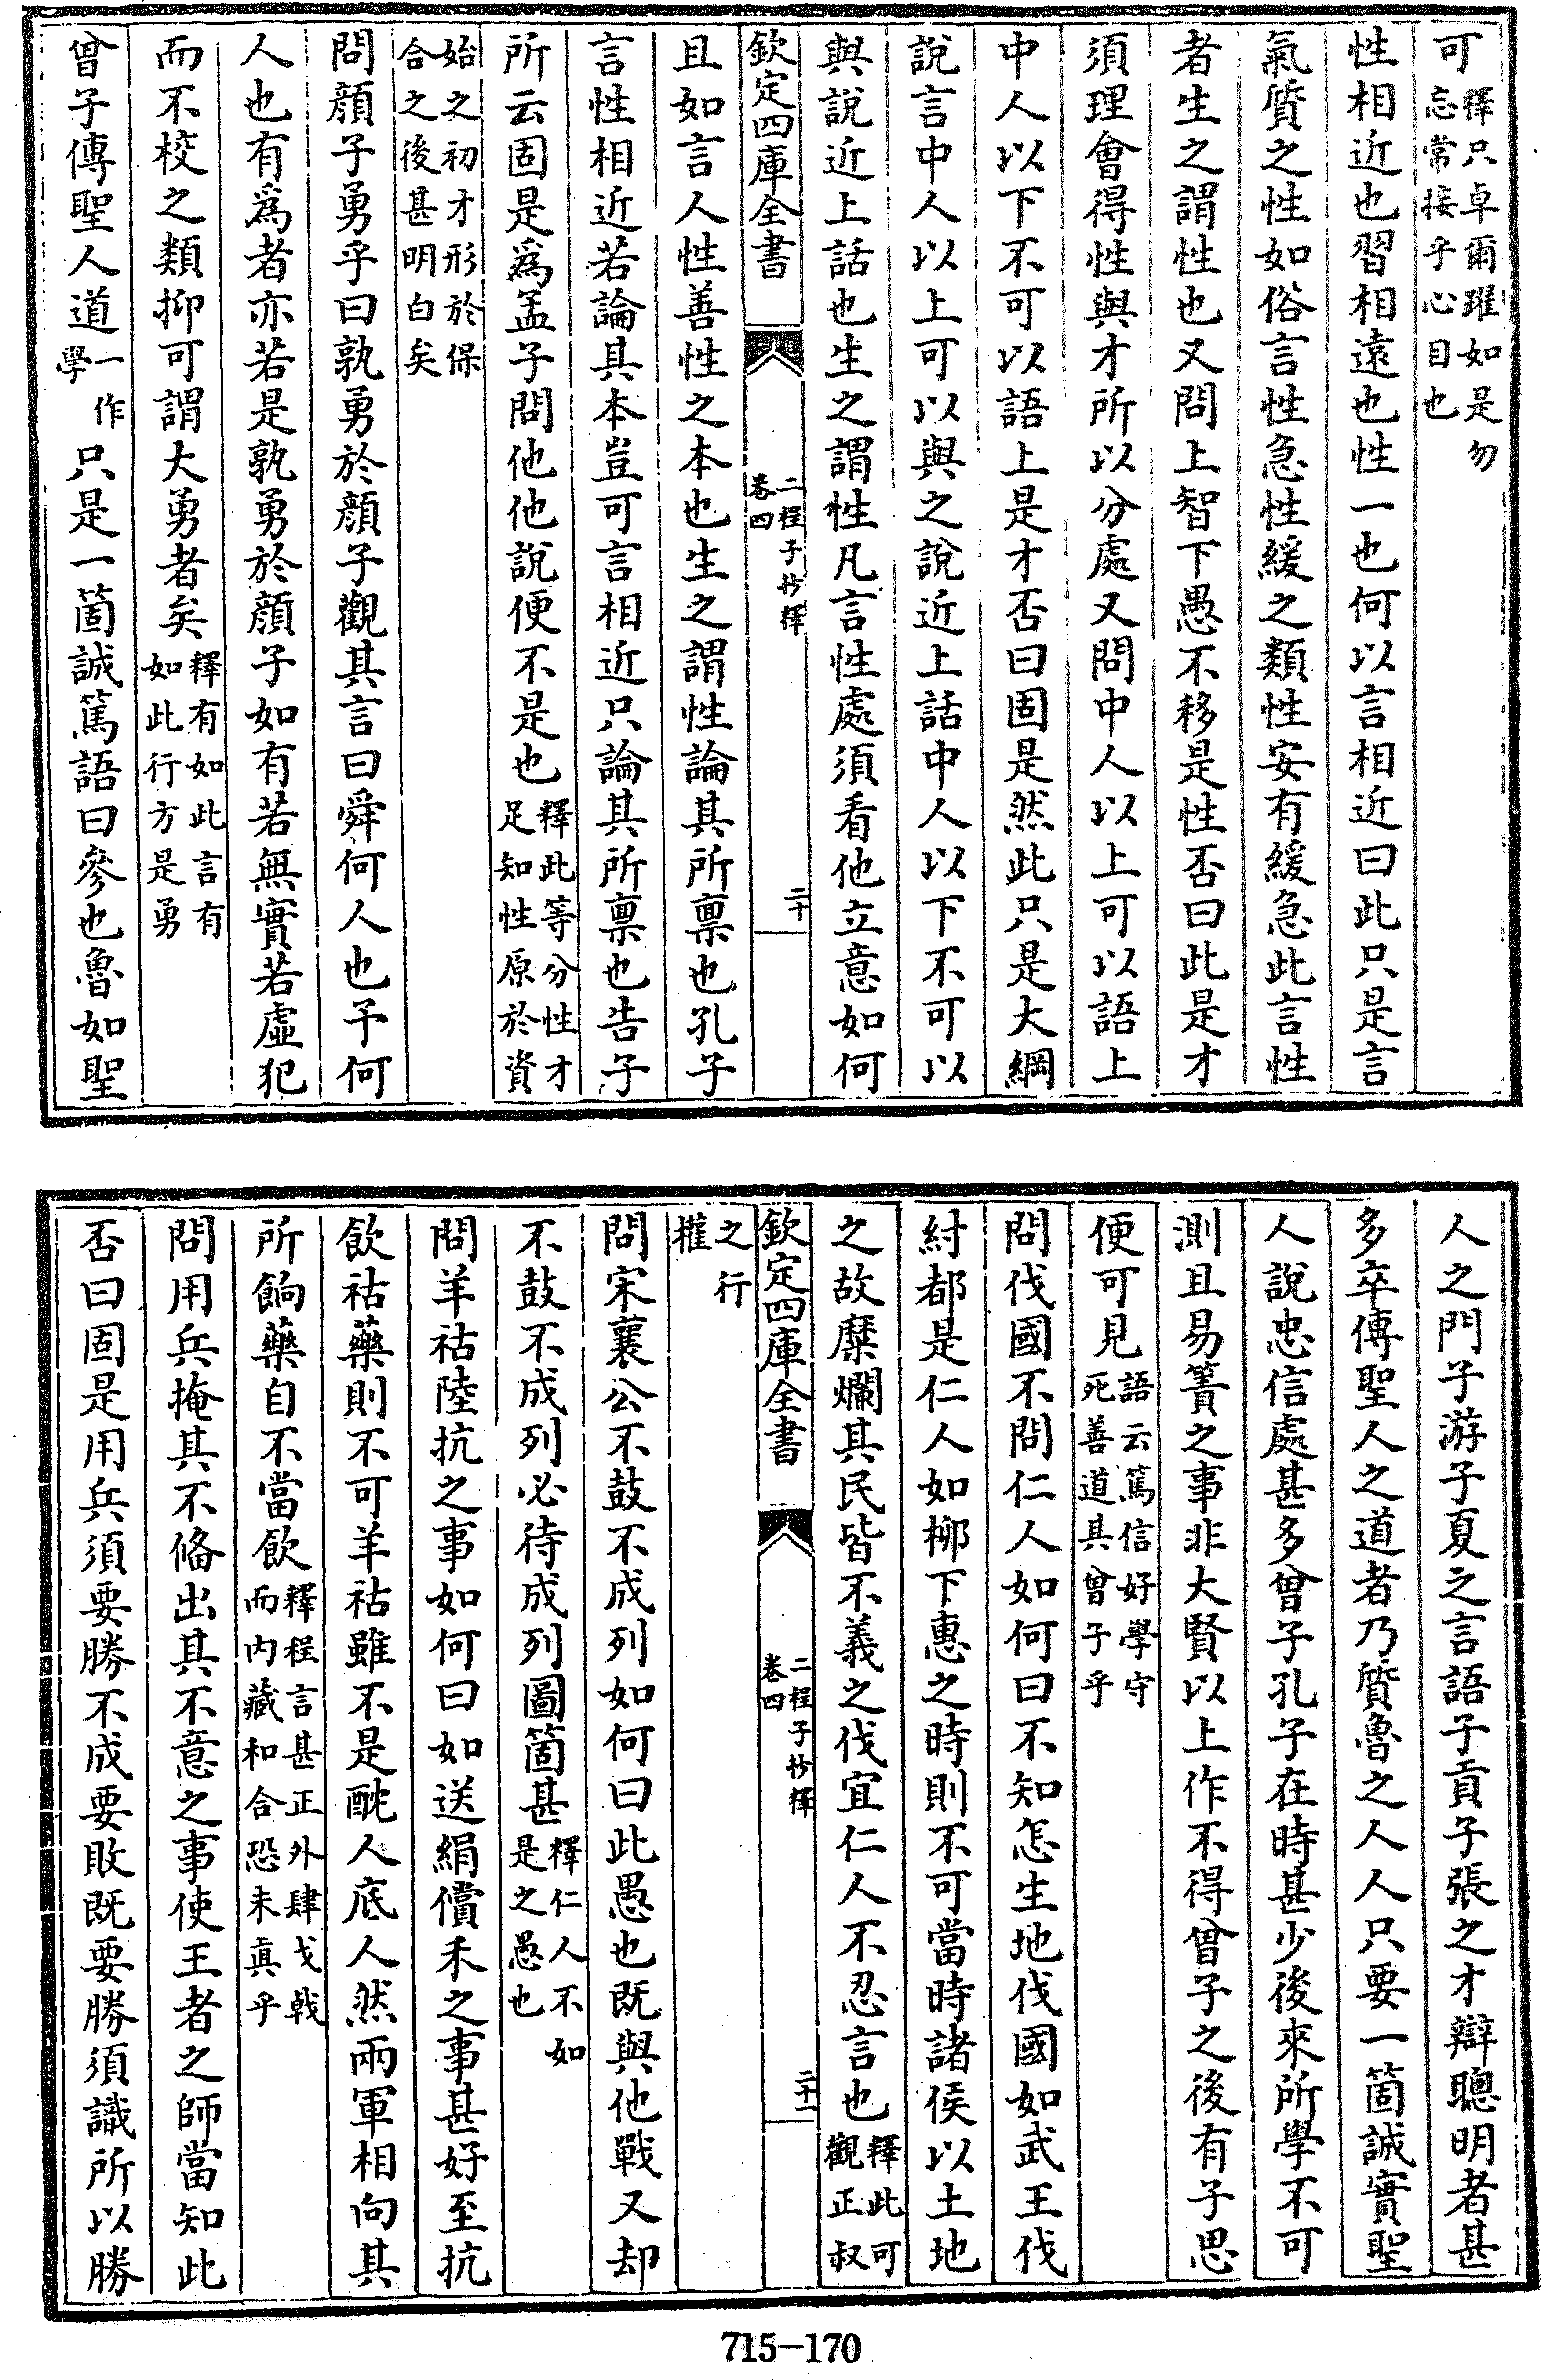 可釋只卓爾躍如是勿忘常接乎心目也
性相近也習相遠也性一也何以言相近曰此只是言
氣質之性如俗言性急性緩之類性安有緩急此言性
者生之謂性也又問上智下愚不移是性否曰此是才
須理會得性與才所以分處又問中人以上可以語上
中人以下不可以語上是才否曰固是然此只是大綱
說言中人以上可以與之說近上話中人以下不可以
與說近上話也生之謂性凡言性處須看他立意如何
欽定四庫全書 二程子抄釋卷四 二十
且如言人性善性之本也生之謂性論其所禀也孔子
言性相近若論其本豈可言相近只論其所禀也告子
所云固是為孟子問他他說便不是也釋此等分性才足知性原於資
始之初才形於保合之後甚明白矣
問顔子勇乎曰孰勇於顔子觀其言曰舜何人也予何
人也有為者亦若是孰勇於顔子如有若無實若虛犯
而不校之類抑可謂大勇者矣釋有如此言有如此行方是勇
曾子傳聖人道一作學只是一箇誠篤語曰參也魯如聖
人之門子游子夏之言語子貢子張之才辯聰明者甚
多卒傳聖人之道者乃質魯之人人只要一箇誠實聖
人說忠信處甚多曾子孔子在時甚少後來所學不可
測且易簀之事非大賢以上作不得曾子之後有子思
便可見語云篤信好學守死善道其曾子乎
問伐國不問仁人如何曰不知怎生地伐國如武王伐
紂都是仁人如栁下惠之時則不可當時諸侯以土地
之故糜爛其民皆不義之伐宜仁人不忍言也釋此可觀正叔
欽定四庫全書 二程子抄釋卷四 二十一
之行權
問宋襄公不鼓不成列如何曰此愚也既與他戰又却
不鼓不成列必待成列圖箇甚釋仁人不如是之愚也
問羊祜陸抗之事如何曰如送絹償禾之事甚好至抗
飲祜藥則不可羊祜雖不是酖人底人然兩軍相向其
所餉藥自不當飲釋程言甚正外肆戈戟而内藏和合恐未眞乎
問用兵掩其不備出其不意之事使王者之師當知此
否曰固是用兵須要勝不成要敗既要勝須識所以勝
715-170